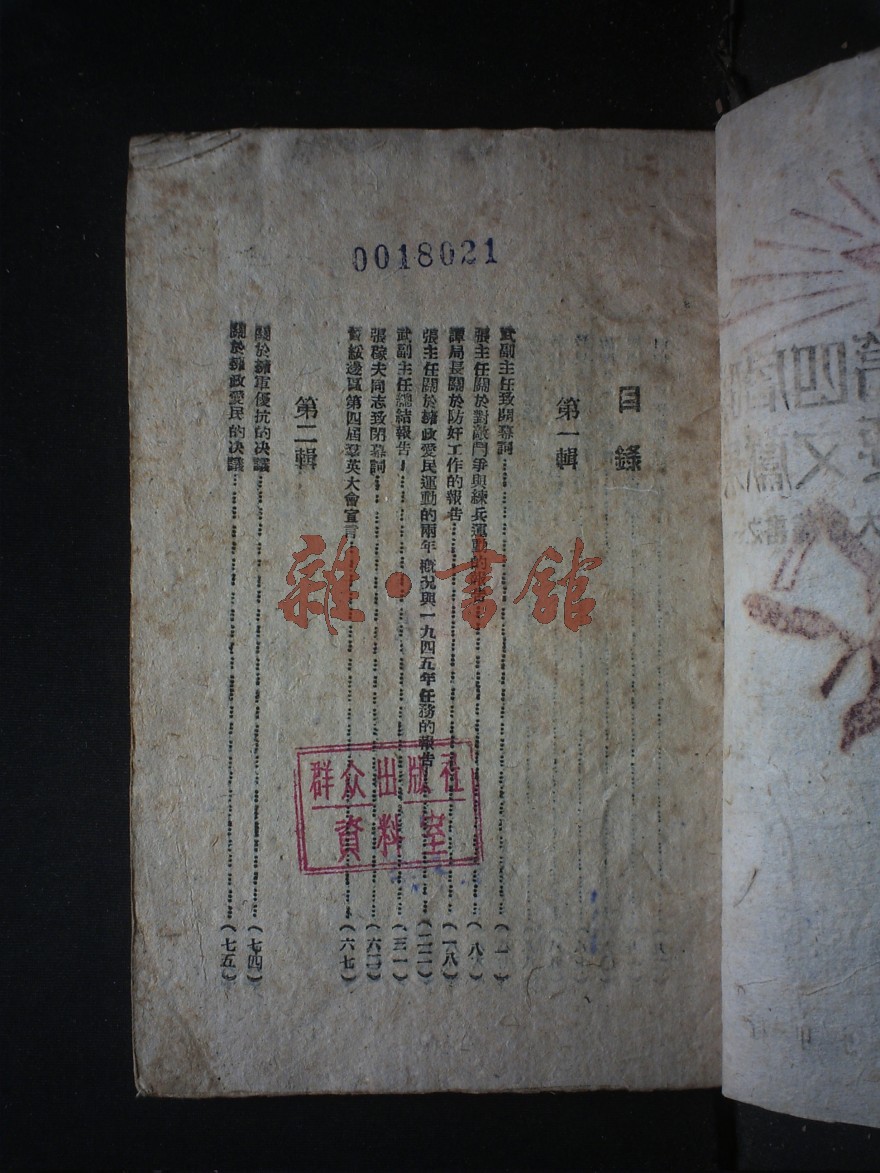 0018021
目錄
第一輯
武副主任致開幕詞(一)
張主任關於對敵鬥爭與練兵運動的報告(八)
譚局長關於防奸工作的報告(一八)
張主任關於擁政愛民運動的兩年概況與一九四五年任務的報告(二二)
武副主任總結報告(三一)
張稼夫同志致閉幕詞(六二)
晉綏邊區第四屆羣英大會宣言(六七)
第二輯
關於擁軍優抗的決議(七四)
關於擁政愛民的決議(七五)
群众出版社
資料室
雜·書館
第四屆
文獻